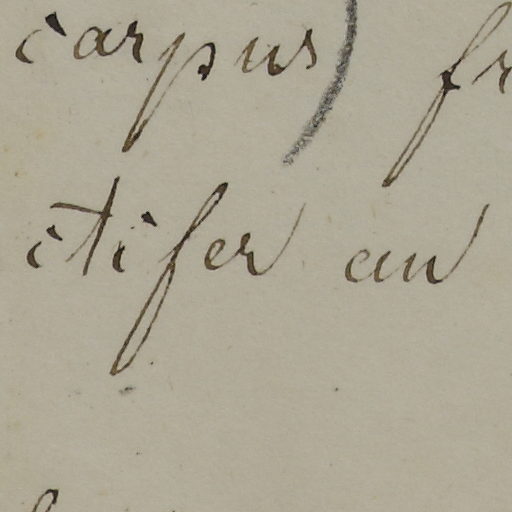 carpus) fr
ctifer au